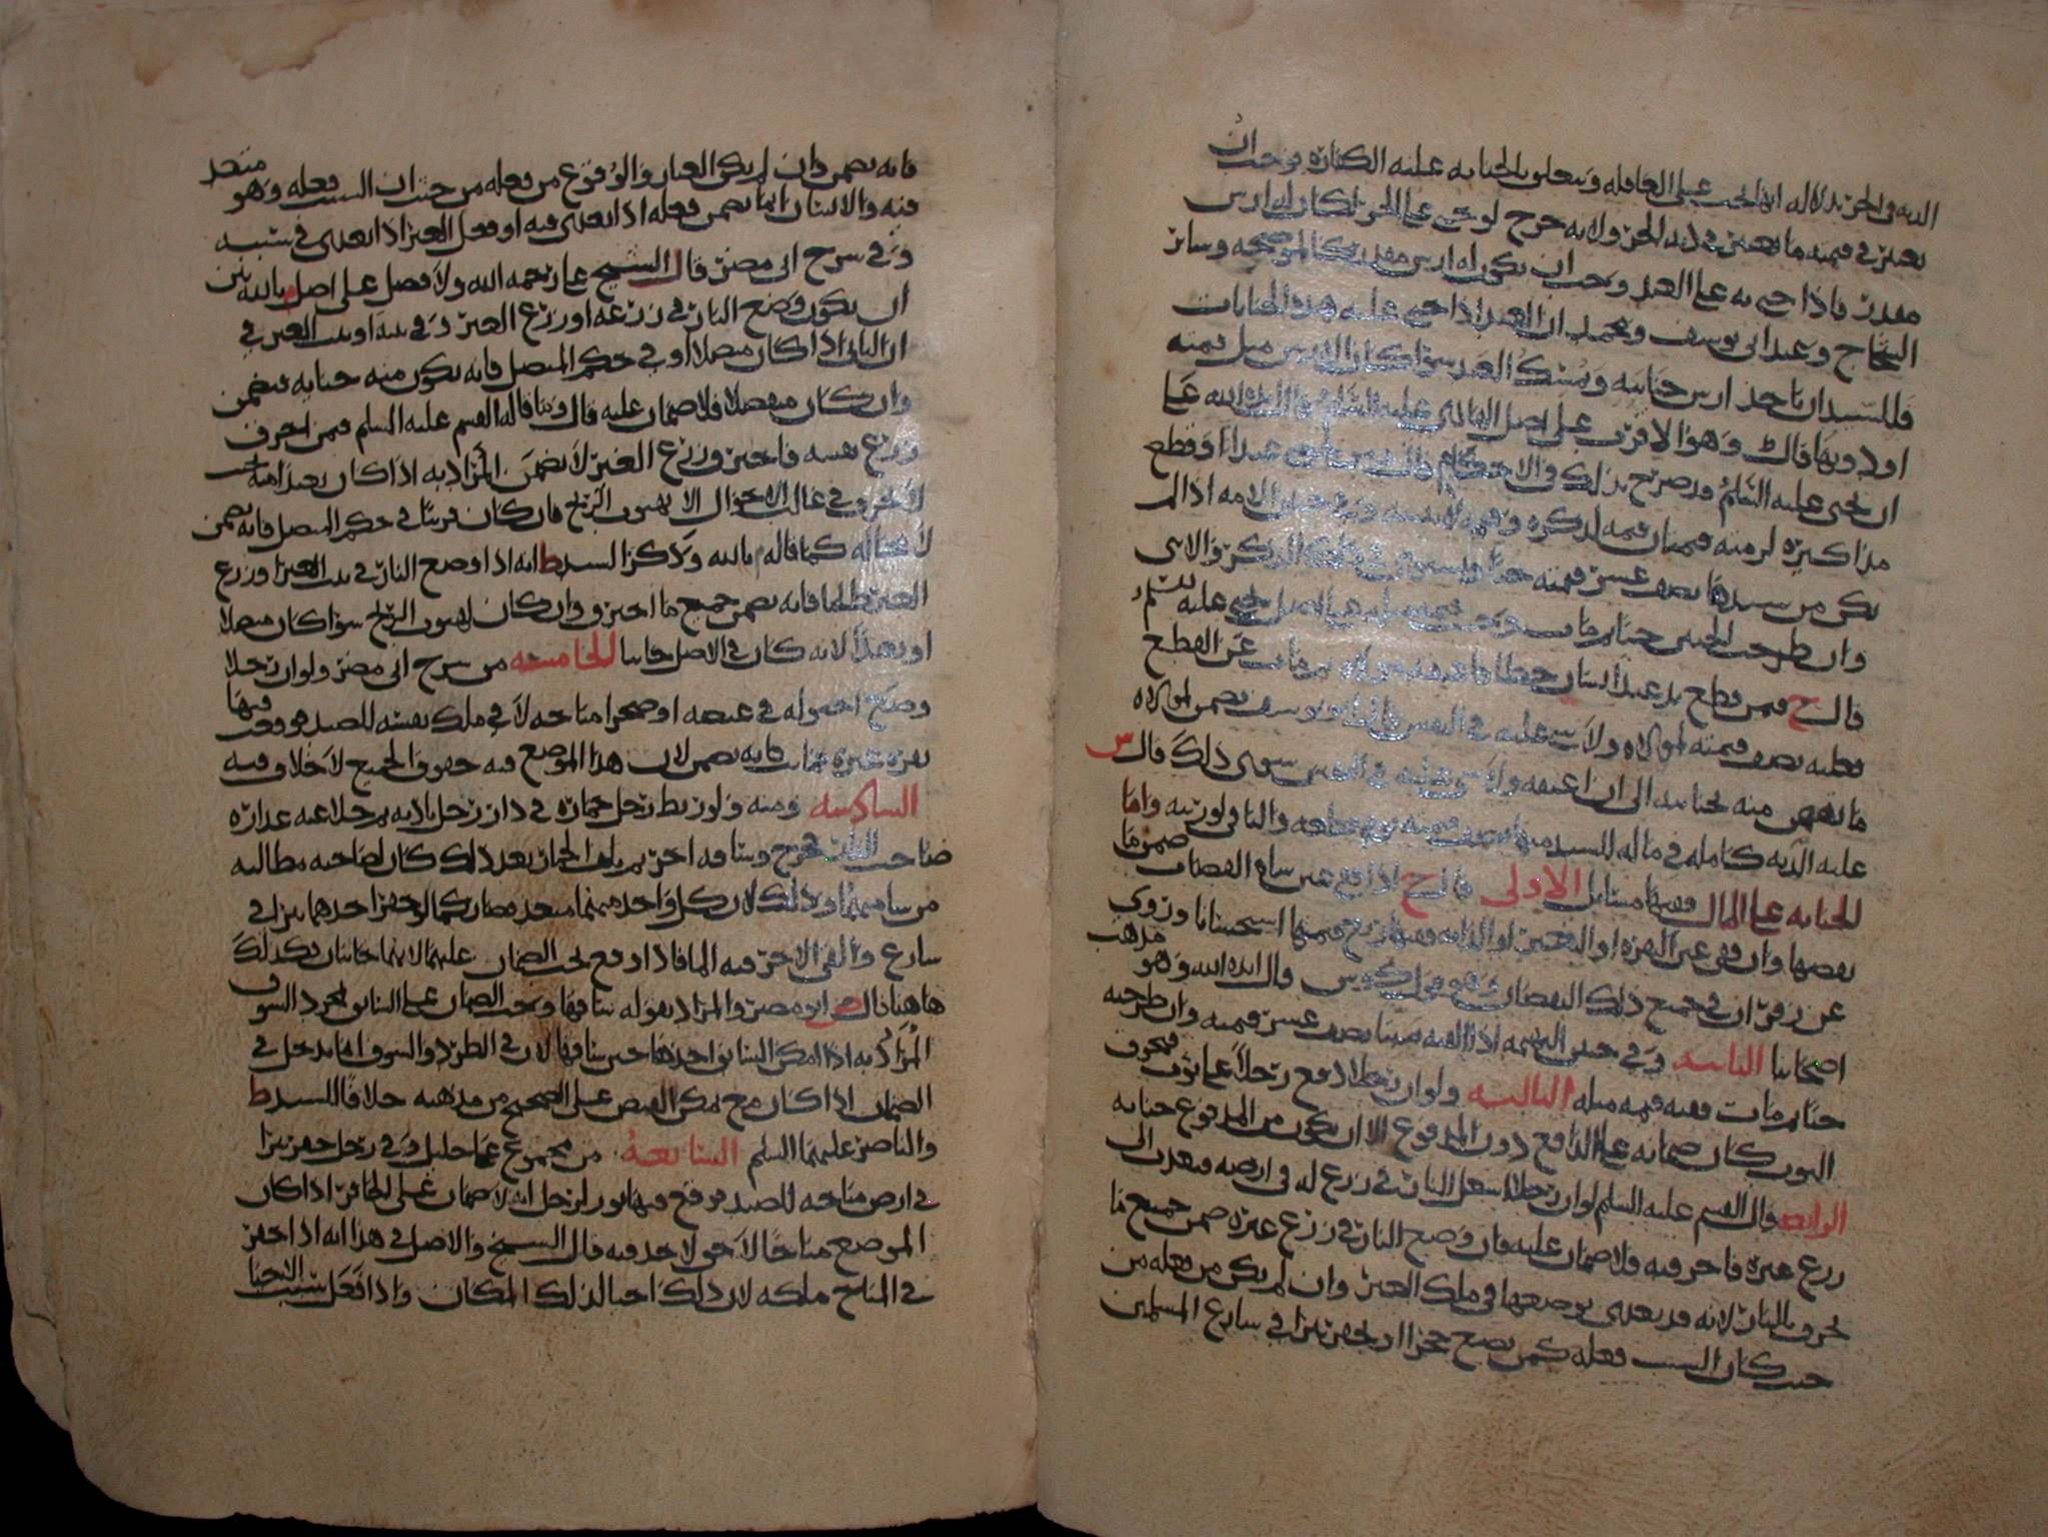 الديه في الحر بدلاله انها تجب على العاقله ويتعلق بالجنايه عليه الكفاره فوجب ان
يعتبر في قيمته ما يعتبر في ديه الحر ولانه جرح لو جني على الحر لكان له ارش
مقدر فاذا جني به على العبد وجب ان يكون له ارش مقدر كالموضحه وساير
الشجاج وعند ابي يوسف ومحمد ان العبد اذا جني عليه هذه الجنايات
فللسيد ان ياخذ ارش جنايته ويمسك العبد سوا كان الارش مثل قيمته
او دونها قال وهو الاقرب على اصل الهادي عليه السلم
ان يحيى عليه السلم قد صرح بذلك في الاحكام عبدا او قطع
مذاكيره لزمته قيمتان قيمه لذكره وفي جنين الامه اذا لم
يكن من سيدها نصف عشر قيمته الذكر والانثى
وان طرحت الجنين حيا ثم مات وجبت قيمته
قال ح فيمن قطع يد عبد انسان خطا ثم مات عن القطع
فعليه نصف قيمته لمولاه ولا شي عليه في النفس يضمن لمولاه
ما نقص منه بجنايته الى ان اعتقه ولا شي عليه في النفس سوى ذلك قال س
عليه الديه كامله في ماله للسيد منها نصف قيمته والباقي لورثته واما
الجنايه على المال ففيها مسايل الاولى قال ح اذا فقى عين شاه القصاب ضمن ما
نقصها وان فقى عين البقره او البعير او الدابه ففيها ربع قيمتها استحسانا وروي
عن زفر ان في جميع ذلك النقصان وهو قول قال ايده الله وهو مذهب
اصحابنا الثانيه وفي جنين البهيمه اذا القته ميتا نصف عشر قيمته وان طرحته
حيا ثم مات ففيه قيمه مثله الثالثه ولو ان رجلا دفع رجلا على ثوب فتخرق
الثوب كان ضمانه على الدافع دون المدفوع الا ان يكون من المدفوع جنايه
الرابعه قال القسم عليه السلم لو ان رجلا اشعل النار في زرع له في ارضه فتعدت الى
زرع غيره فاحترق فيه فلا ضمان عليه فان وضع النار في زرع غيره ضمن جميع ما
تحرق بالنار لانه قد تعدى بوضعها في ملك الغير وان لم يكن من فعله من
حيث كان السبب فعله كمن يضع حجرا او يحفر بيرا في شارع المسلمين
فانه يضمن وان لم يكن العثار والوقوع من فعله من حيث ان السبب فعله وهو متعد
فيه والانسان انما يضمن فعله اذا تعدى فيه او فعل الغير اذا تعدى في سببه
وفي شرح ابي مضر قال الشيخ علي رحمه الله ولا فصل على اصل م بالله بين
ان يكون وضع النار في زرعه او زرع الغير وفي بيته او بيت الغير في
ان الثاني اذا كان متصلا او في حكم المتصل فانه يكون منه جنايه فيضمن
وان كان منفصلا فلا ضمان عليه قال وما قاله القسم عليه السلم فيمن احرق
زرع نفسه فاحترق زرع الغير لا يضمن المراد به اذا كان بعيدا منه بحيث
لا يحترق في غالب الاحوال الا بهبوب الريح فان كان قريبا في حكم المتصل فانه يضمن
لا محاله كما قاله م بالله وذكر السيد ط انه اذا وضع النار في بيت الغير او زرع
الغير ظلما فانه يضمن جميع ما احترق وان كان لهبوب الريح سوا كان متصلا
او بعيدا لانه كان في الاصل جانيا الخامسه من شرح ابي مضر ولو ان رجلا
وضع احبوله في غيضه او صحرا مباحه لا في ملك نفسه للصيد فوقعت فيها
بقره غيره فماتت فانه يضمن لان هذا الموضع فيه حقوق الجميع لا خلاف فيه
السادسه ومنه ولو ربط رجل حماره في دار رجل باذنه ثم جا
صاحب الدار بحمار اخر ثم تلف الحمار بعد ذلك كان لصاحبه مطالبه
من شا منهما وذلك لان كل واحد منهما متعد فصار كما لو حفر احدهما بيرا في
شارع والقى الاخر فيه الما فاذا وقع يجب الضمان عليهما لانهما جانيان فكذلك
هاهنا قال ض ابو مضر والمراد بقوله ساقها وبحب الضمان على السايق بمجرد السوق
المراد به اذا امكن السايق اخذها حين ساقها لان في الطرد والسوق انما يدخل في
الضمان اذا كان مع تمكن القبض على الصحيح من مذهبه خلافا للسيد ط
والناصر عليهما السلم السابعه من مجموع علي خليل وفي رجل حفر بيرا
في ارض مباحه للصيد فوقع فيها ثور لرجل انه لا ضمان على الحافر اذا كان
الموضع مباحا لا حق لاحد فيه قال الشيخ والاصل في هذا انه اذا احتفر
في المباح ملكه لان ذلك احيا لذلك المكان واذا فعل سبب الاحيا